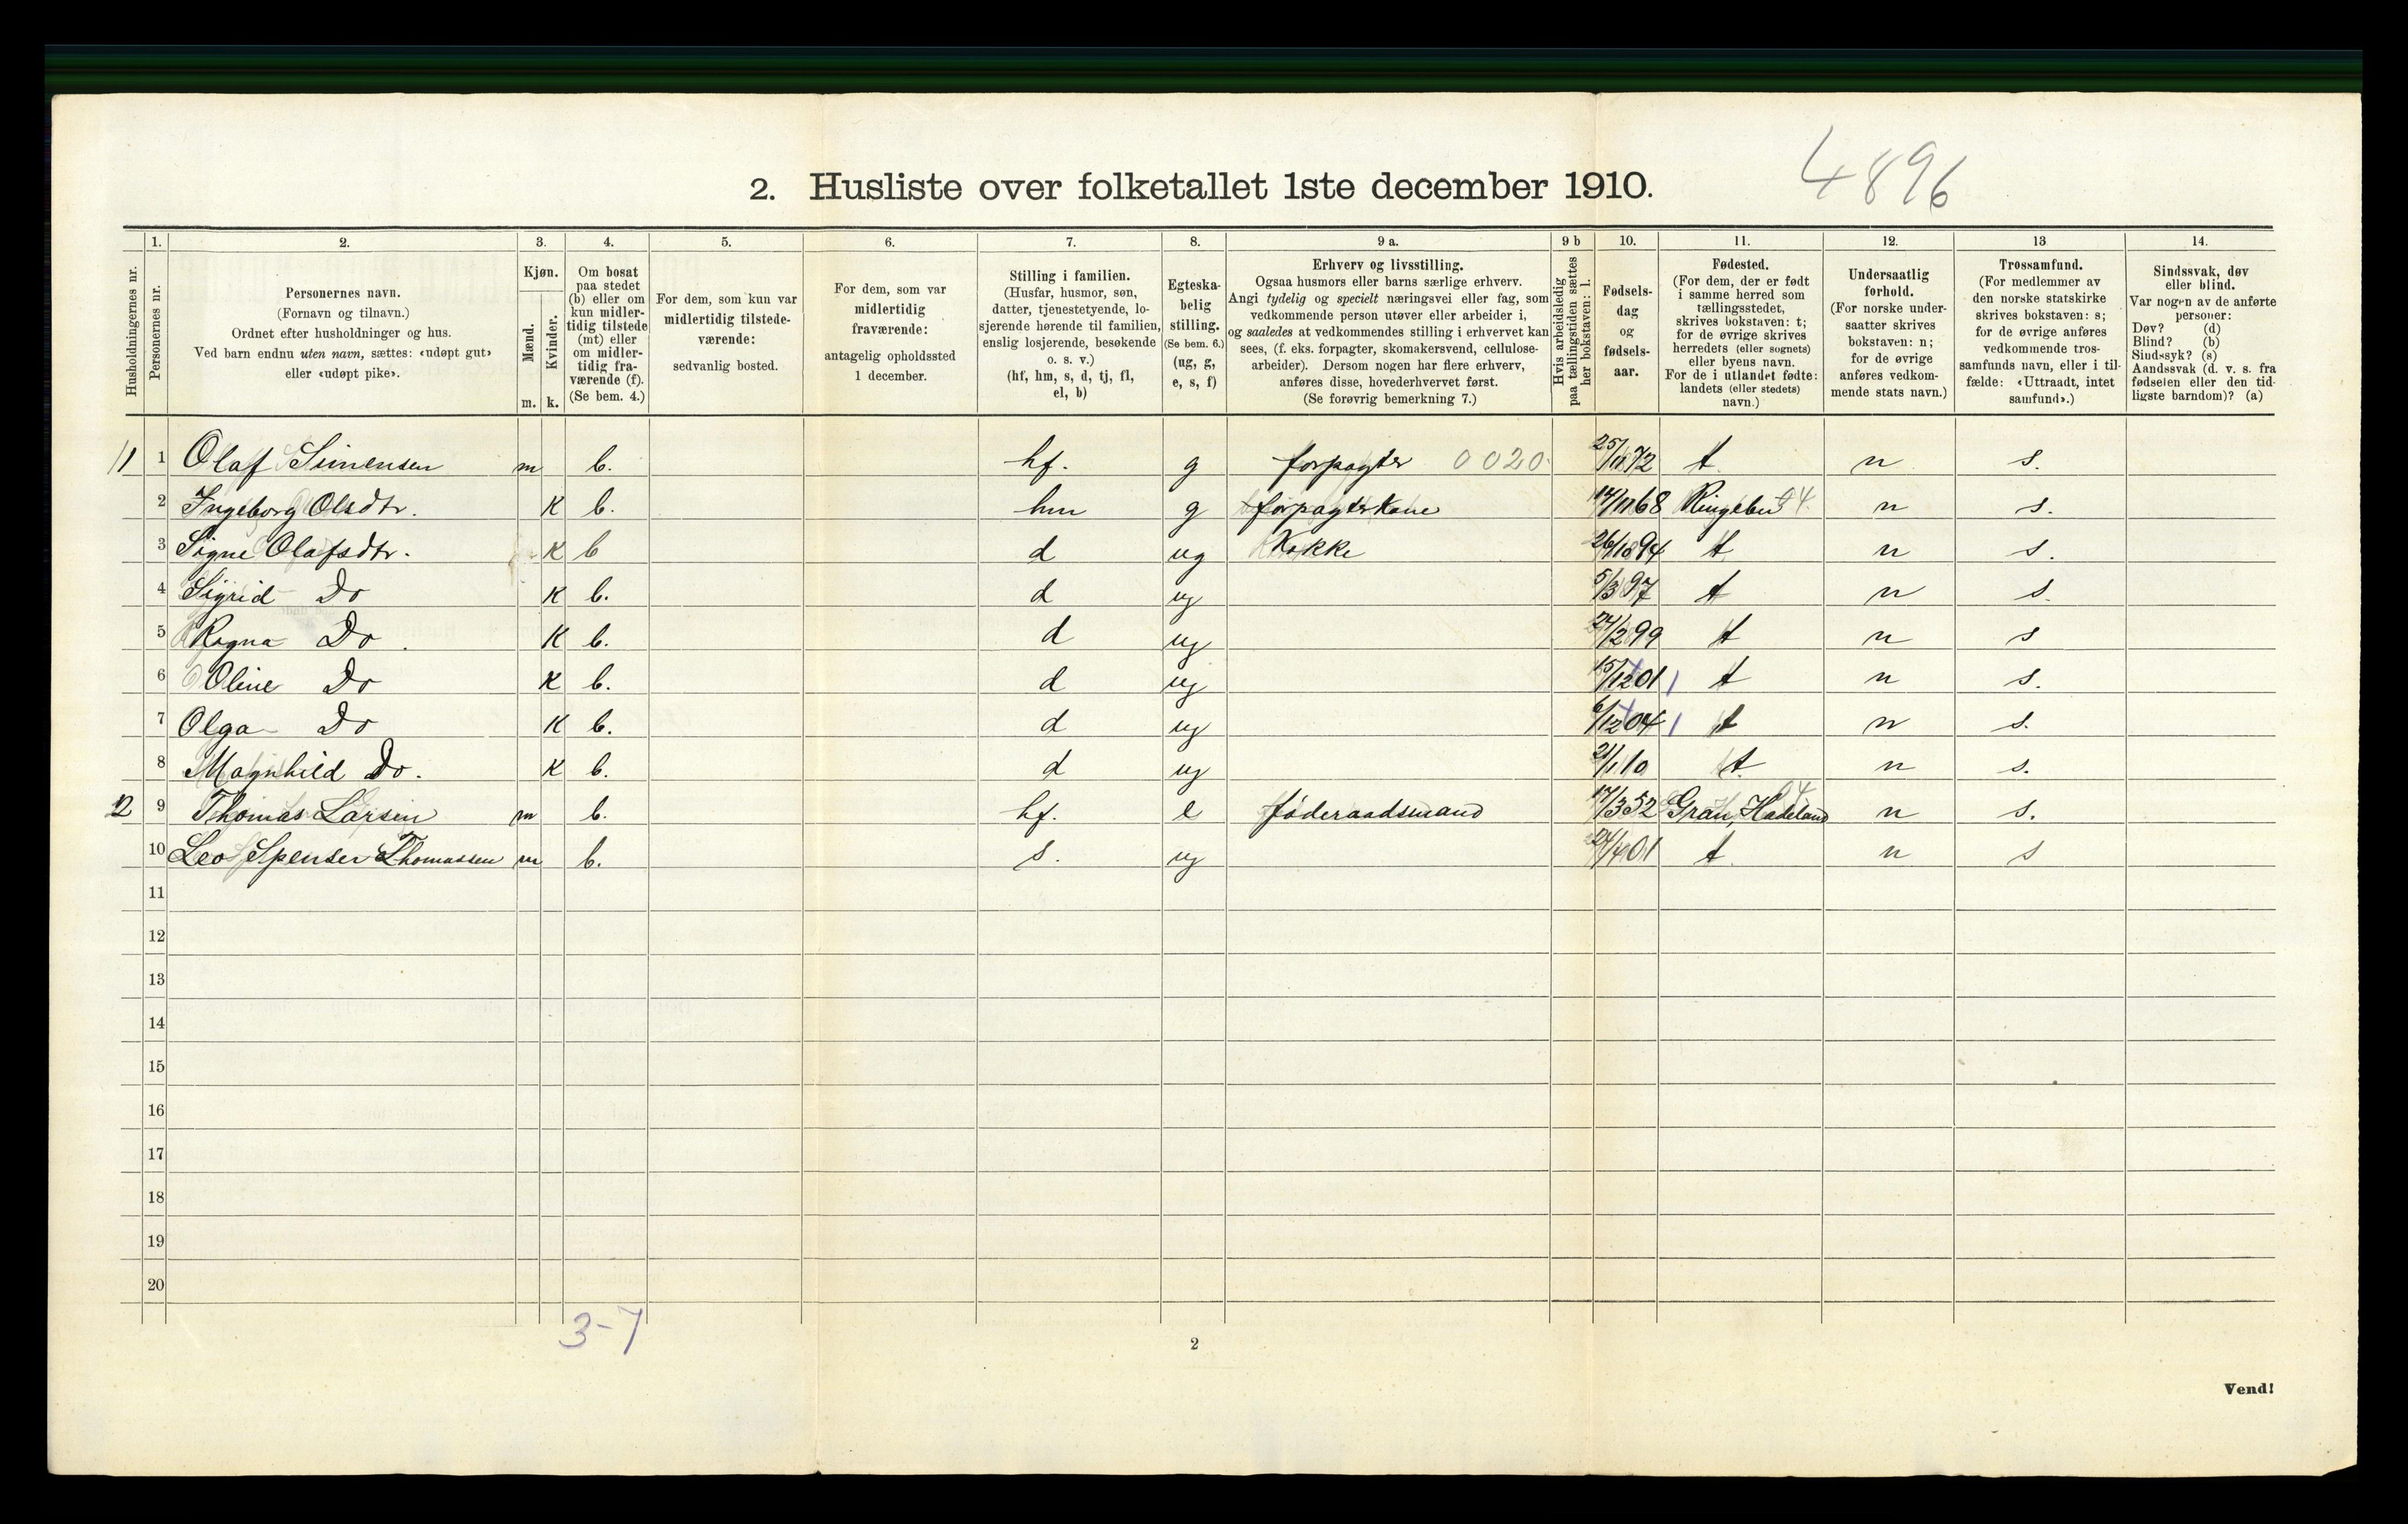 4896
2. Husliste over folketallet 1ste december 1910.
Husholdningernes nr.
1. Personernes nr.
2. Personernes navn. (Fornavn og tilnavn.) Ordnet efter husholdninger og hus. Ved barn endnu uten navn, sættes: «udøpt gut» eller «udøpt pike».
3. Kjøn. Mænd. m. Kvinder. k.
4. Om bosat paa stedet (b) eller om kun midlertidig tilstede (mt) eller om midlertidig fraværende (f). (Se bem. 4.)
5. For dem, som kun var midlertidig tilstedeværende: sedvanlig bosted.
6. For dem, som var midlertidig fraværende: antagelig opholdssted 1 december.
7. Stilling i familien. (Husfar, husmor, søn, datter, tjenestetyende, losjerende hørende til familien, enslig losjerende, besøkende o. s. v.) (hf, hm, s, d, tj, fl, el, b)
8. Egteskabelig stilling. (Se bem. 6.) (ug, g, e, s, f)
9 a. Erhverv og livsstilling. Ogsaa husmors eller barns særlige erhverv. Angi tydelig og specielt næringsvei eller fag, som vedkommende person utøver eller arbeider i, og saaledes at vedkommendes stilling i erhvervet kan sees, (f. eks. forpagter, skomakersvend, cellulosearbeider). Dersom nogen har flere erhverv, anføres disse, hovederhvervet først. (Se forøvrig bemerkning 7.)
9 b Hvis arbeidsledig paa tællingstiden sættes her bokstaven: l.
10. Fødselsdag og fødselsaar.
11. Fødested. (For dem, der er født i samme herred som tællingsstedet, skrives bokstaven: t; for de øvrige skrives herredets (eller sognets) eller byens navn. For de i utlandet fødte: landets (eller stedets) navn.)
12. Undersaatlig forhold. (For norske undersaatter skrives bokstaven: n; for de øvrige anføres vedkommende stats navn.)
13 Trossamfund. (For medlemmer av den norske statskirke skrives bokstaven: s; for de øvrige anføres vedkommende trossamfunds navn, eller i tilfælde: «Uttraadt, intet samfund».)
14. Sindssvak, døv eller blind. Var nogen av de anførte personer: Døv? (d) Blind? (b) Sindssyk? (s) Aandssvak (d. v. s. fra fødselen eller den tidligste barndom)? (a)
1 1 Olaf Simensen m b. hf. g forpagter 0020 25/11 72 t n s.
2 Ingeborg Olsdtr. K b. hm g forpagterkone 14/11 68 Ringebu n s.
3 Signe Olafsdtr. K b d ug Kokke 26/10 94 t n s.
4 Sigrid Do K b. d ug 5/3 97 t n s.
5 Ragna Do. K b. d ug 24/2 99 t n s
6 Oline Do K b. d ug 15/12 01 t n s.
7 Olga Do K b. d ug 6/12 04 t n s.
8 Magnhild Do. K b. d ug 21/1 10 t n s.
2 9 Thomas Larsen m b. hf. e føderaadsmand 17/3 52 Gran, Hadeland n s.
10 Leo Spenser Thomassen m b. s. ug 24/4 01 t n s
11
12
13
14
15
16
17
18
19
20
3-7
2
Vend!